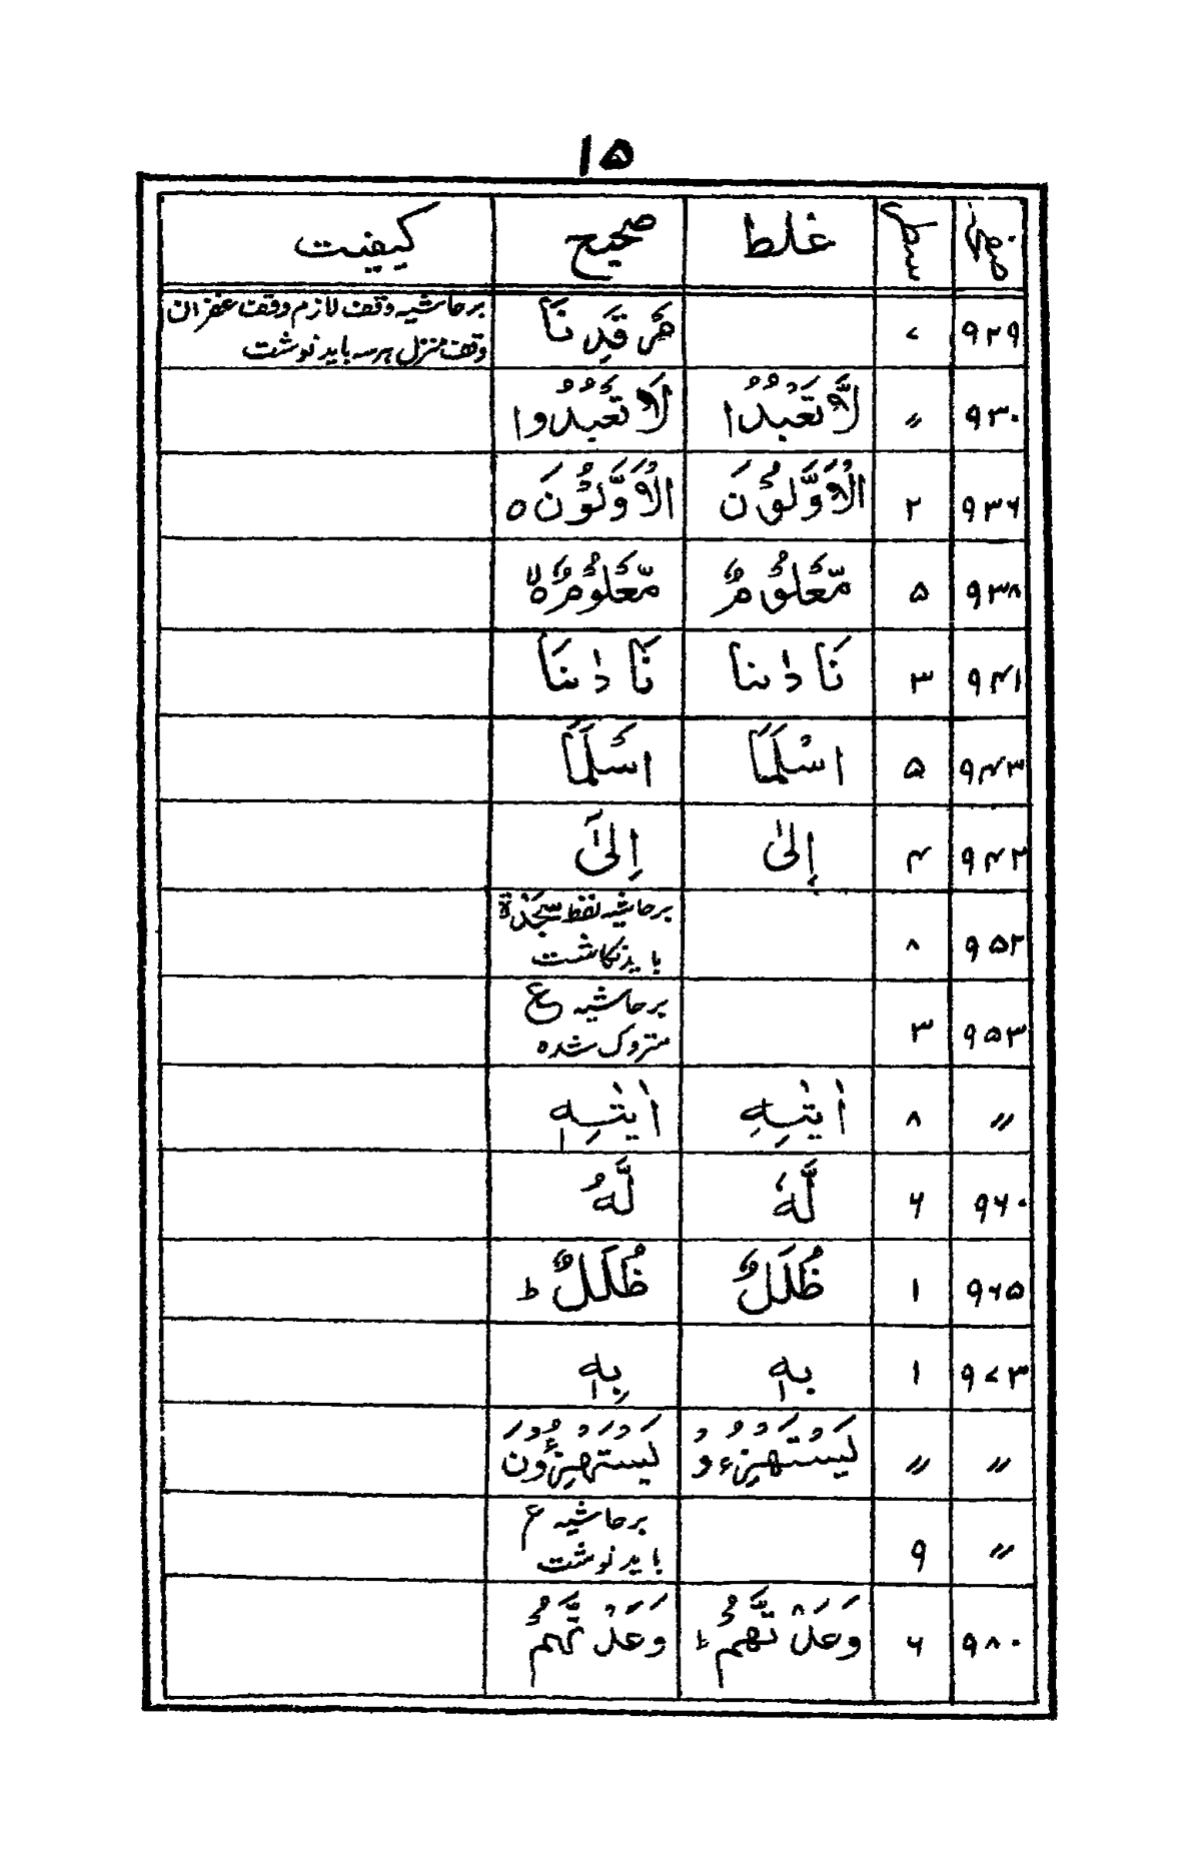 ۱۵
صفحہ سطر غلط صحیح کیفیت
۹۲۹ ۷ مَرْقَدِنَا برحاشیہ وقف لازم وقف غفران
وقف منزل ہرسہ باید نوشت
۹۳۰ 〃 لَّا تَعْبُدُا لَا تَعْبُدُوا
۹۳۶ ۲ الْاَوَّلُوْنَ الْاَوَّلُوْنَ ہ
۹۳۸ ۵ مَّعْلُوْمٌ مَّعْلُوْمٌ ہ لا
۹۴۱ ۳ نَادٰىنا نَادٰىنَا
۹۴۳ ۵ اسْلَمَا اَسْلَمَا
۹۴۲ ۴ اِلىٰ اِلىٰٓ
۹۵۲ ۸ برحاشیہ لفظ سَجْدَة
باید نگاشت
۹۵۳ ۳ برحاشیہ ع
متروک شدہ
〃 ۸ اٰيٰتِهِ اٰيٰتِهٖ
۹۶۰ ۶ لَّهٗ لَّهُ
۹۶۵ ۱ ظُلَلٌ ظُلَلٌ ط
۹۷۳ ۱ بهٖ بِهٖ
〃 〃 يَسْتَهْزِءُوْ يَسْتَهْزِءُوْنَ
〃 ۹ برحاشیہ ع
باید نوشت
۹۸۰ ۶ وَعَدْتَّهُمْ ط وَعَدْتَّهُمْ